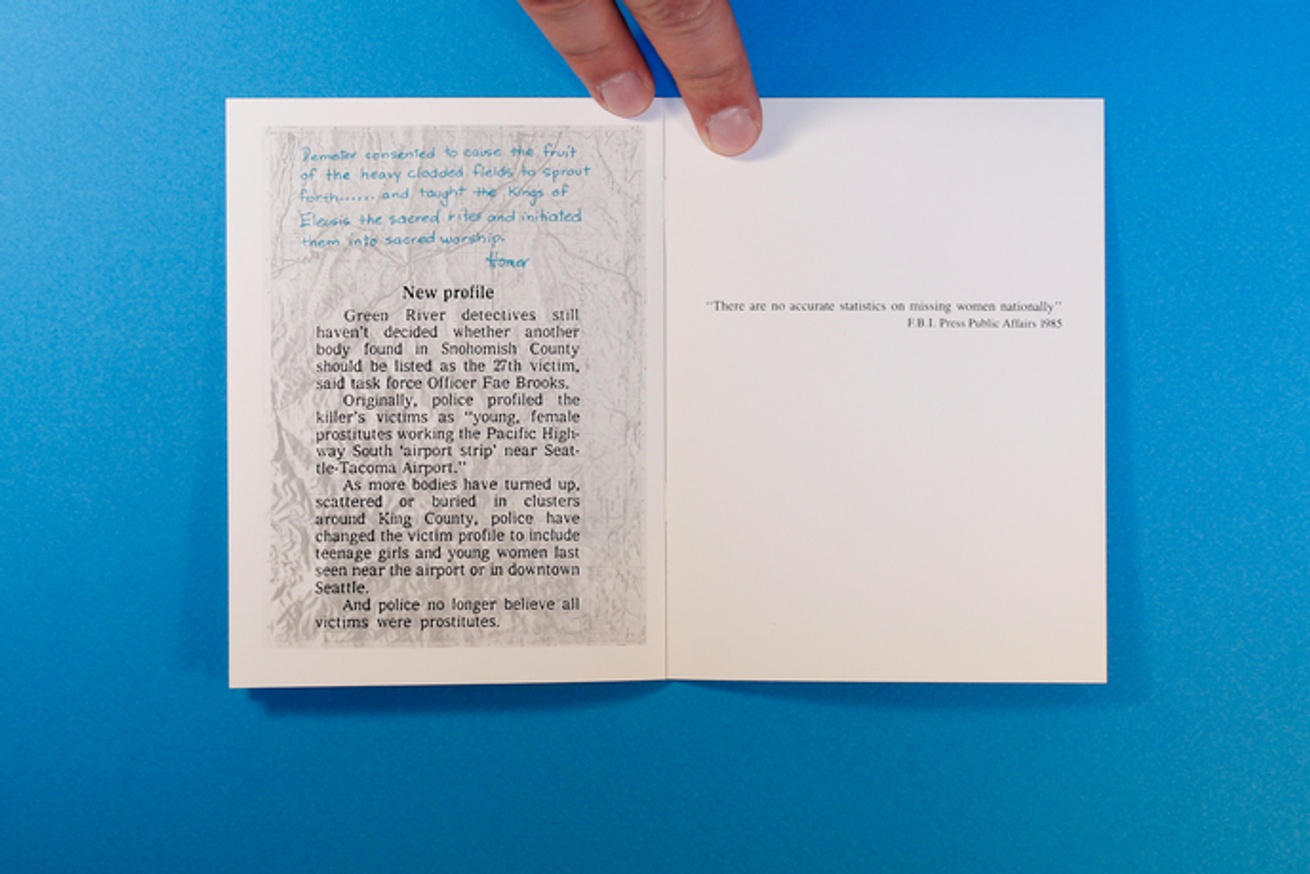 Demeter consented to cause the fruit
of the heavy clodded fields to sprout
forth...... and taught the Kings of
Eleusis the sacred rites and initiated
them into sacred worship.
Homer
New profile
Green River detectives still
haven't decided whether another
body found in Snohomish County
should be listed as the 27th victim,
said task force Officer Fae Brooks.
Originally, police profiled the
killer's victims as "young, female
prostitutes working the Pacific High-
way South 'airport strip' near Seat-
tle-Tacoma Airport."
As more bodies have turned up,
scattered or buried in clusters
around King County, police have
changed the victim profile to include
teenage girls and young women last
seen near the airport or in downtown
Seattle.
And police no longer believe all
victims were prostitutes.
"There are no accurate statistics on missing women nationally"
F.B.I. Press Public Affairs 1985